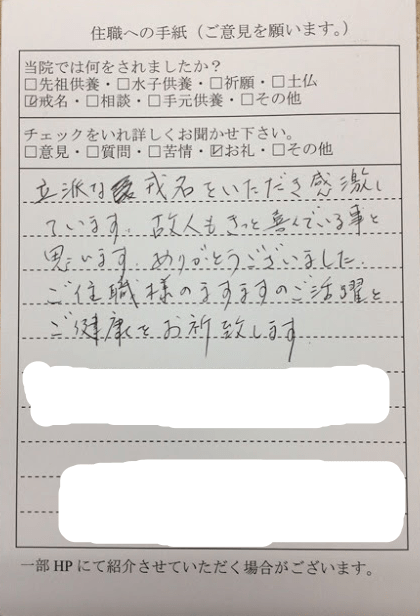 住職への手紙（ご意見を願います。）
当院では何をされましたか？
□先祖供養・□水子供養・□祈願・□土仏
☑戒名・□相談・□手元供養・□その他
チェックをいれ詳しくお聞かせ下さい。
□意見・□質問・□苦情・☑お礼・□その他
立派な戒名をいただき感激し
ています。故人もきっと喜んでいる事と
思います。ありがとうございました。
ご住職様のますますのご活躍と
ご健康をお祈致します
一部HPにて紹介させていただく場合がございます。